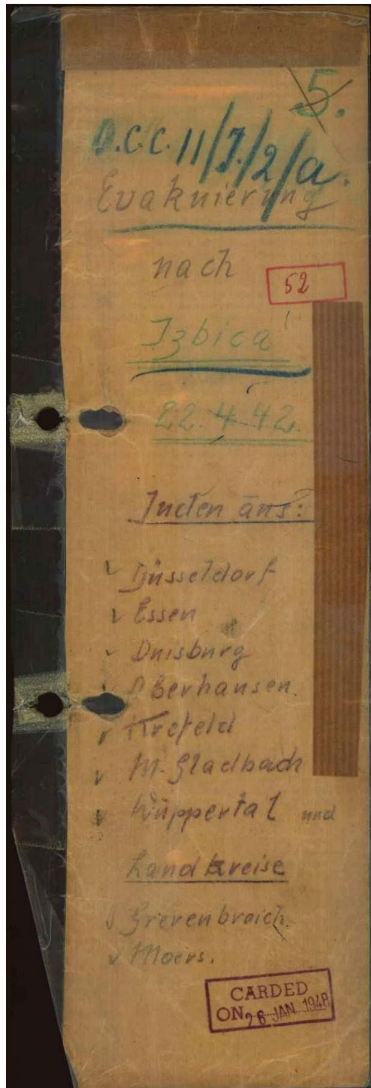 5.
D.C.C. 11/J/2/a.
Evakuierung
nach
52
Izbica
22.4.42.
Juden aus:
Düsseldorf
Essen
Duisburg
Oberhausen.
Krefeld
M. Gladbach
Wuppertal und
Landkreise
Grevenbroich.
Moers.
CARDED
ON 26 JAN 1948